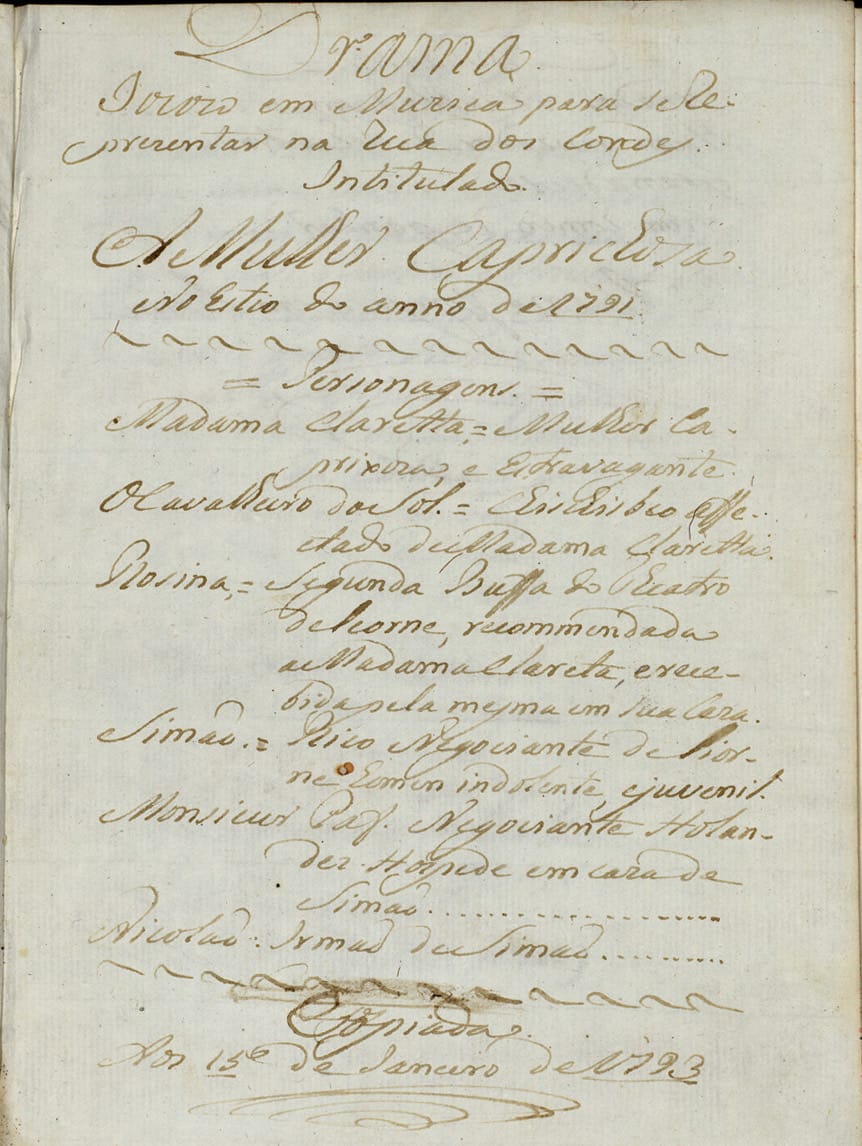 Drama
Jocozo em Muzica para se Re-
prezentar na Rua dos Condes.
Intitulado.
A Mulher Capricioza
No Estio do anno de 1791
= Personagens. =
Madama Claretta, = Mulher Ca-
prixoza, e Estravagante.
O Cavalheiro do Sol. = Chichisbeo affe-
ctado de Madama Claretta.
Rosina, = Segunda Buffa do Teatro
de Liorne, recommendada
a Madama Clareta, e rece-
bida pela mesma em sua Caza.
Simaõ. = Rico Negociante de Lior-
ne Homen indolente, e juvenil.
Monsieur Paf. Negociante Holan-
dez. Hospede em caza de
Simaõ....................
Nicolaõ. Irmaõ de Simaõ.........
Copiada.
Aos 15 de Janeiro de 1793